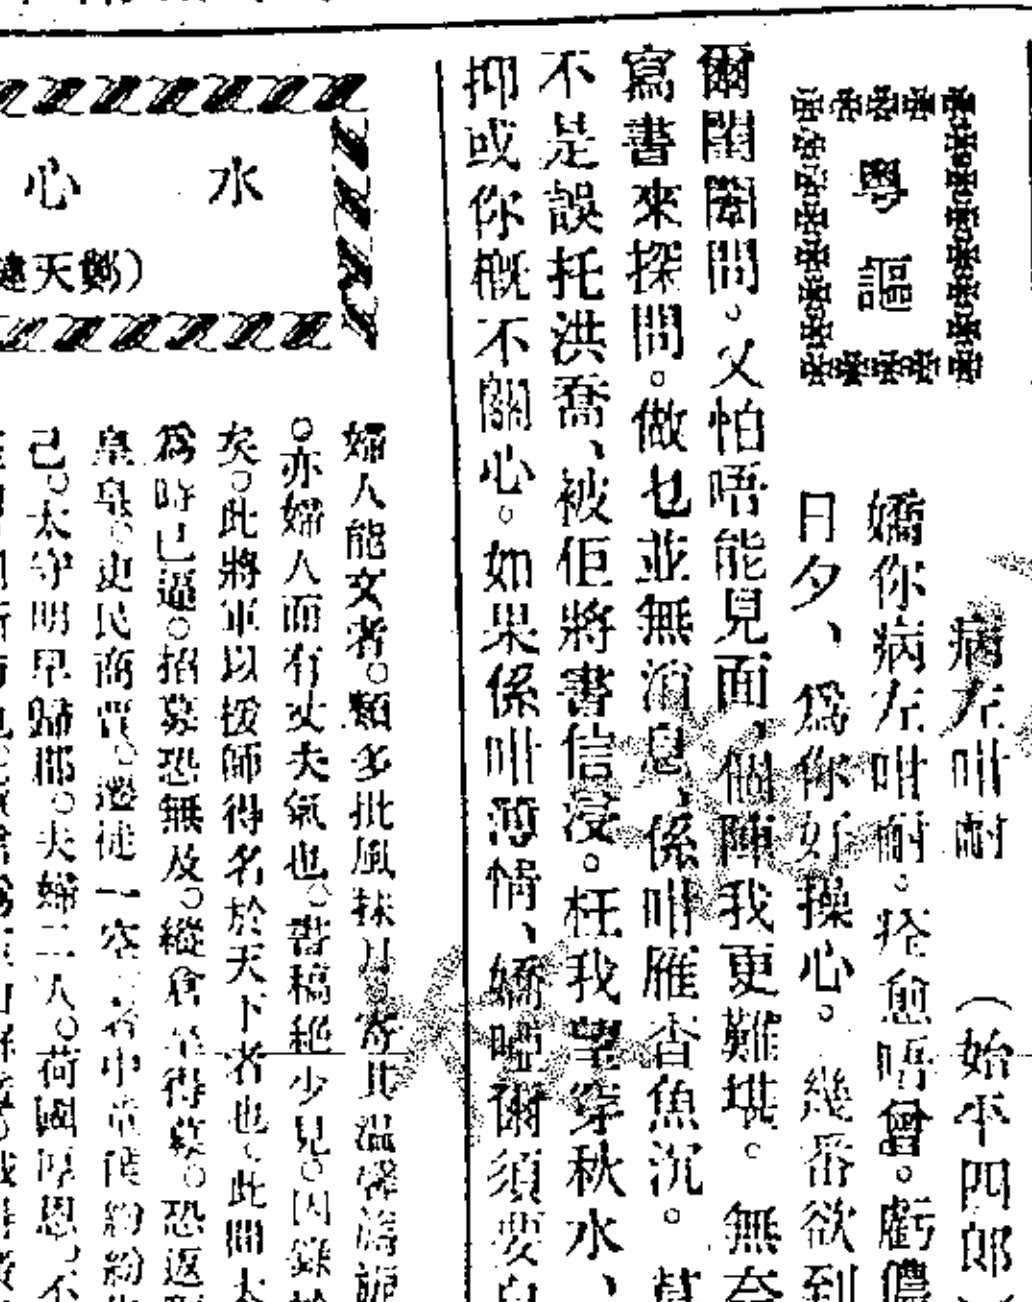 粵謳
病左咁耐
（始平四郎
嬌你病左咁耐。痊愈唔曾。虧儂
日夕、爲你好操心。幾番欲到
爾閨閣問。又怕唔能見面、個陣我更難堪。無奈
寫書來探問。做乜並無消息、係咁雁杳魚沉。莫
不是誤托洪喬、被佢將書信浸。枉我望穿秋水、
抑或你概不關心。如果係咁薄情、嬌呀你須要自
水心
（鄭天健
婦人能文者。類多批風抹月。寄其溫馨旖旎
。亦婦人而有丈夫氣也。書稿絕少見。因錄於
矣。此將軍以援師得名於天下者也、此間太
爲時已逼。招募恐無及。縱倉卒得募。恐返
皇皇。吏民商賈。遷徙一空。署中童僕紛紛
己。太守明早歸郡。夫婦二人。荷國厚恩。不